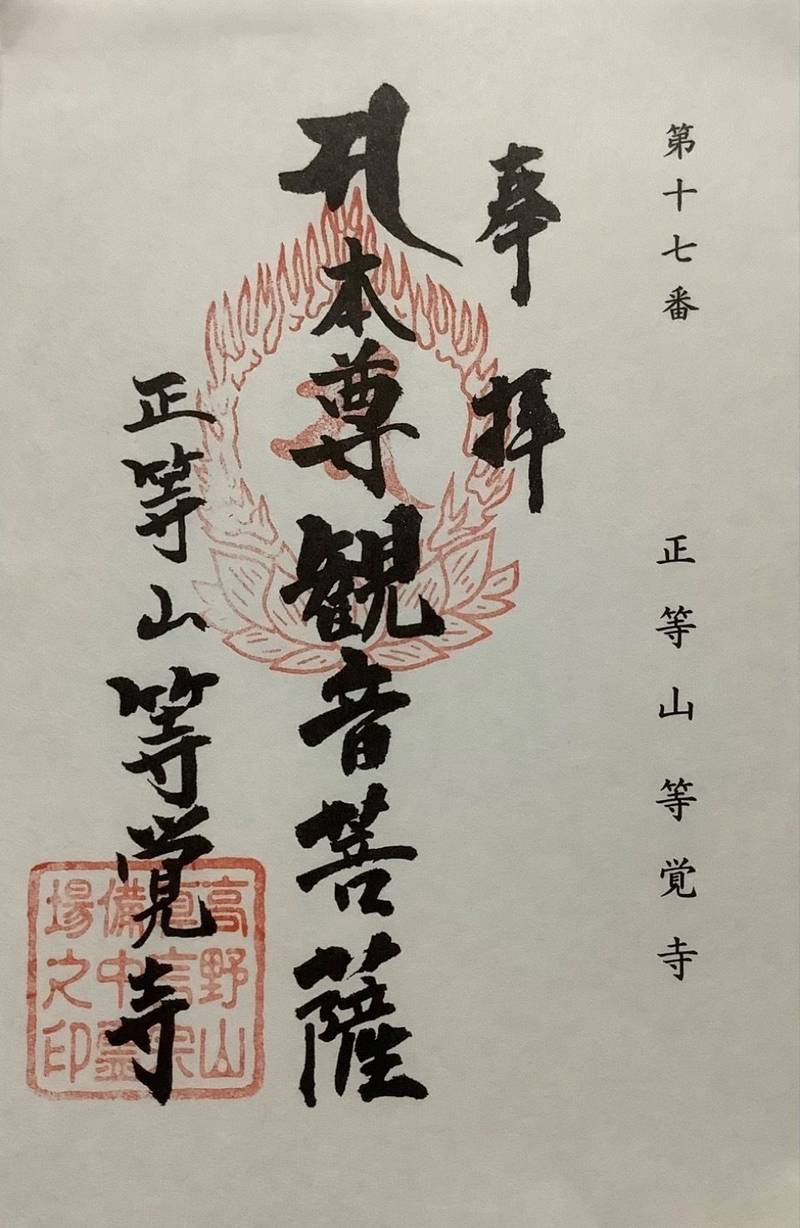 第十七番 正等山等覚寺
奉拝
本尊観音菩薩
正等山等覚寺
高野山
真言宗
備中霊
場之印